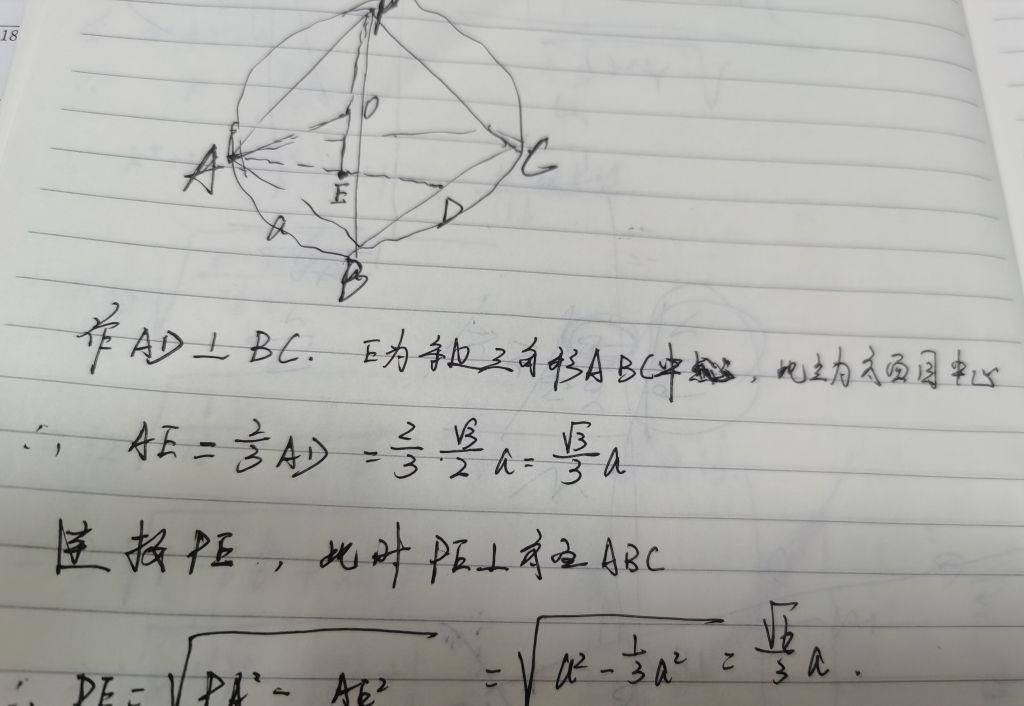 18
P
O
A
C
E
D
a
B
作 AD ⊥ BC. E为等边三角形ABC中心, 此
∴ AE = 2/3 AD = 2/3 · √3/2 a = √3/3 a
连接 PE, 此时 PE ⊥ ABC
∴ PE = √(PA² - AE²) = √(a² - 1/3 a²) = √6/3 a.